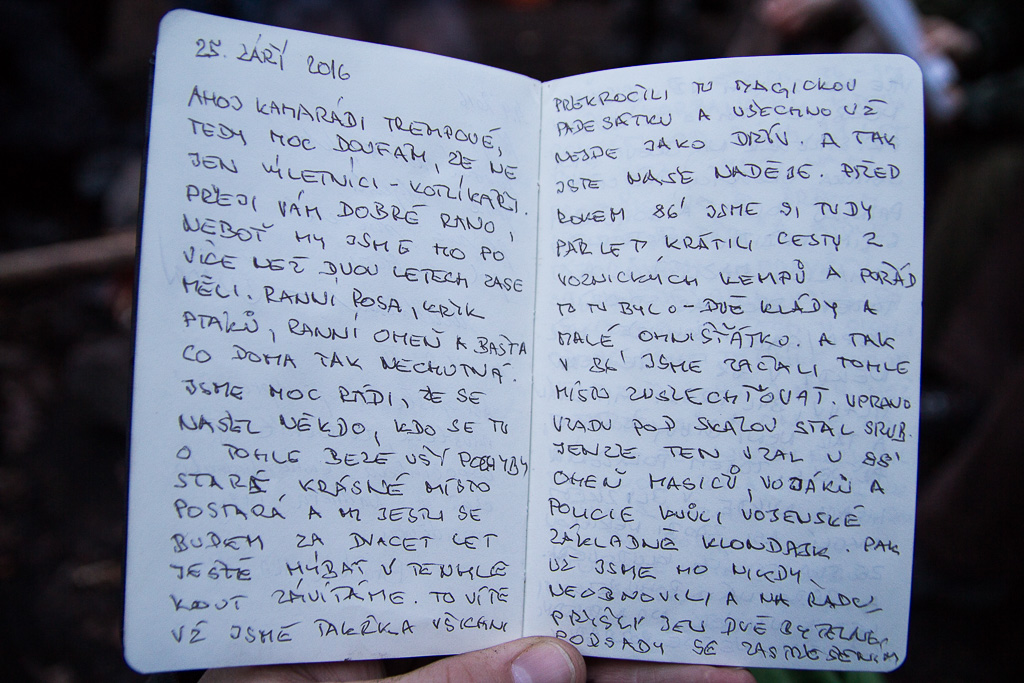 25. ZÁŘÍ 2016
AHOJ KAMARÁDI TREMPOVÉ,
TEDY MOC DOUFÁM, ŽE NE
JEN VÍLETNÍCI - KOTLÍKAŘI.
PŘEJI VÁM DOBRÉ RANO,
NEBOŤ MY JSME HO PO
VÍCE NEŽ DVOU LETECH ZASE
MĚLI. RANNÍ ROSA, KŘIK
PTÁKŮ, RANNÍ OHEŇ A BAŠTA
CO DOMA TAK NECHUTNÁ.
JSME MOC RÁDI, ŽE SE
NAŠEL NĚKDO, KDO SE TU
O TOHLE BEZE VŠÍ POCHYBY
STARÉ KRÁSNÉ MÍSTO
POSTARÁ A MI JESTLI SE
BUDEM ZA DVACET LET
JEŠTĚ HÝBAT V TENHLE
KOUT ZAVÍTÁME. TO VÍTE
UŽ JSME TAKŘKA VŠICHNI
PŘEKROČILI TU MAGICKOU
PADESÁTKU A VŠECHNO UŽ
NEJDE JAKO DŘÍV. A TAK
JSTE NAŠE NADĚJE. PŘED
ROKEM 86' JSME SI TUDY
PÁR LET KRÁTILI CESTY Z
VOZNICKÝCH KEMPŮ A POŘÁD
TO TU BYLO - DVĚ KLÁDY A
MALÉ OHNIŠŤÁTKO. A TAK
V 86' JSME ZAČALI TOHLE
MÍSTO ZUŠLECHŤOVAT. VPRAVO
VZADU POD SKALOU STÁL SRUB.
JENŽE TEN VZAL V 88'
OHEŇ HASIČŮ, VOJÁKŮ A
POLICIE KVŮLI VOJENSKÉ
ZÁKLADNĚ KLONDAJK. PAK
UŽ JSME HO NIKDY
NEOBNOVILI A NA ŘADU
PŘIŠLY JEN DVĚ BYTELNĚJ
PODSADY SE ZASTŘEŠENÍM